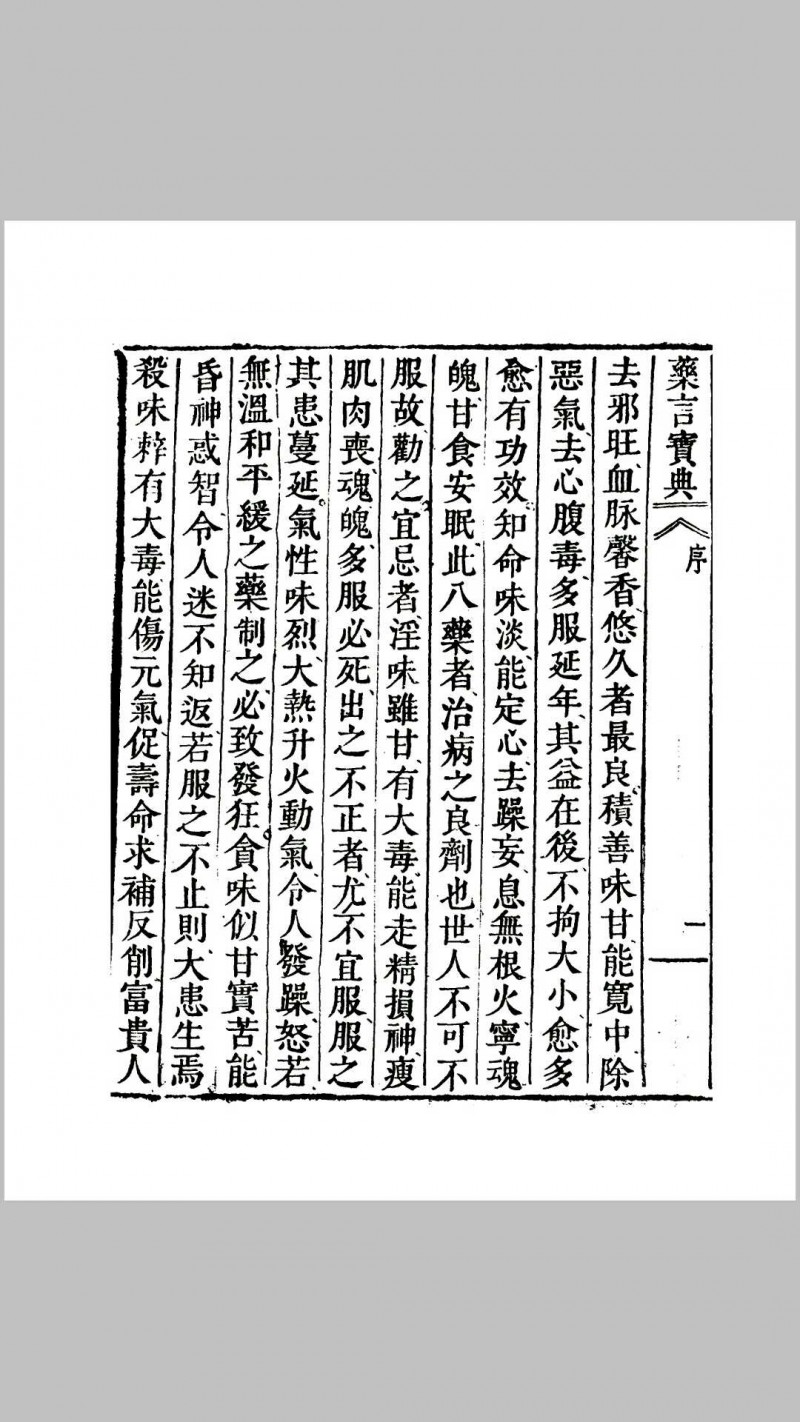 藥言寶典
序
二
去邪旺血脉馨香悠久者最良積善味甘能寬中除
惡氣去心腹毒多服延年其益在後不拘大小愈多
愈有功效知命味淡能定心去躁妄息無根火寧魂
魄甘食安眠此八藥者治病之良劑也世人不可不
服故勸之宜忌者淫味雖甘有大毒能走精損神瘦
肌肉喪魂魄多服必死出之不正者尤不宜服服之
其患蔓延氣性味烈大熱升火動氣令人發躁怒若
無溫和平緩之藥制之必致發狂貪味似甘實苦能
昏神惑智令人迷不知返若服之不止則大患生焉
殺味辢有大毒能傷元氣促壽命求補反削富貴人